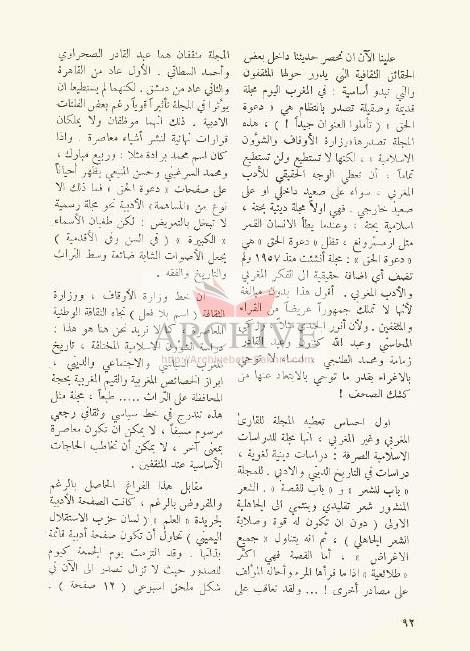 علينا الآن ان نحصر حديثنا داخل بعض
الحقائق الثقافية التي يدور حولها المثقفون
والتي تبدو أساسية : في المغرب اليوم مجلة
قديمة وصقيلة تصدر بانتظام هي « دعوة
الحق » ( تأملوا العنوان جيداً ! ) ، هذه
المجلة تصدرها « وزارة الأوقاف والشؤون
الاسلامية » ، لكنها لا تستطيع ولن تستطيع
تماماً : أن تعطي الوجه الحقيقي للأدب
المغربي ، سواء على صعيد داخلي او على
صعيد خارجي . فهي اولاً مجلة دينية بحتة ،
اسلامية بحتة ، وعندما يطأ الانسان القمر
مثل ارمسترونغ ، تظل « دعوة الحق » هي
« دعوة الحق » : مجلة أنشئت منذ ١٩٥٧ ولم
تضف أي اضافة حقيقية الى الفكر المغربي
والأدب المغربي . أقول هذا بدون مبالغة
لأنها لا تملك جمهوراً عريضاً من القراء
والمثقفين . ولأن أنور الجندي
المحاسني وعبد الله كنون وعبد القادر
زمامة ومحمد الطنجي
بالاغراء بقدر ما توحي بالابتعاد عنها من
كشك الصحف !
اول احساس تعطيه المجلة للقارئ
المغربي وغير المغربي ، انها مجلة للدراسات
الاسلامية الصرفة : دراسات دينية لغوية ،
دراسات في التاريخ الديني والادبي . للمجلة
« باب للشعر » و « باب للقصة » . الشعر
المنشور شعر تقليدي وينتمي الى الجاهلية
الاولى ( دون ان تكون له قوة وصلابة
الشعر الجاهلي ) ، ثم انه يتناول « جميع
الاغراض » ، أما القصة فهي اكثر
« طلائعية » اذا ما قرأها المرء وأحاله المؤلف
على مصادر أخرى ! ... ولقد تعاقب على
المجلة مثقفان هما عبد القادر الصحراوي
وأحمد السطاتي . الأول عاد من القاهرة
والثاني عاد من دمشق . لكنهما لم يستطيعا ان
يؤثرا في المجلة تأثيراً قوياً رغم بعض الفلتات
الادبية . ذلك انهما موظفان ولا يملكان
قرارات نهائية لنشر أشياء معاصرة . واذا
كان اسم محمد برادة مثلا : وربيع مبارك ،
ومحمد السرغيني وحسن المنيعي يظهر أحياناً
على صفحات « دعوة الحق » فما ذلك الا
نوع من « المساهمة » الأدبية نحو مجلة رسمية
لا تبخل بالتعويض : لكن طغيان الأسماء
« الكبيرة » ( في السن وفي الأقدمية )
يجعل الأصوات الشابة ضائعة وسط التراث
والتاريخ والفقه .
ان خط وزارة الأوقاف ، ووزارة
الثقافة ( اسم بلا فعل ) تجاه الثقافة الوطنية
المعاصرة كما لا نريد نحن هنا هو هذا :
دراسة الشؤون الاسلامية المختلفة ، تاريخ
المغرب السياسي والاجتماعي والديني ،
ابراز الخصائص المغربية والقيم المغربية بحجة
المحافظة على التراث ..... طبعاً ، مجلة مثل
هذه تندرج في خط سياسي وثقافي رجعي
مرسوم مسبقاً ، لا يمكن أن تكون معاصرة
بمعنى آخر ، لا يمكن أن تخاطب الحاجات
الأساسية عند المثقفين .
مقابل هذا الفراغ الحاصل بالرغم
والمفروض بالرغم ، كانت الصفحة الأدبية
لجريدة « العلم » ( لسان حزب الاستقلال
اليميني ) تحاول أن تكون صفحة أدبية قائمة
بذاتها . وقد التزمت يوم الجمعة كيوم
للصدور حيث لا تزال تصدر الى الآن في
شكل ملحق اسبوعي ( ١٢ صفحة ) .
ARCHIVE
٩٢